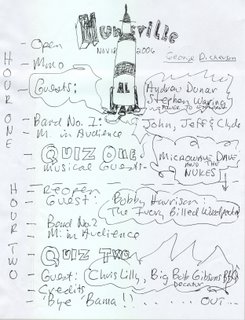 Huntsville
Nov 18 2006
George Dickerson
HOUR ONE
- Open
- Mmo
- Guests:
AL
Andrew Dunar
Stephen Waring
- Band No. 1:
John, Jeff & Clyde
M. in Audience
- QUIZ ONE
Musical Guests -
Micropunj Dave
AND THE
NUKES
HOUR TWO
- Reopen
Guest:
Bobby Harrison:
The Ivory Billed Woodpecker
- Band No. 2
M. in Audience
- QUIZ TWO
- Guest:
Chris Lilly, Big Bob Gibson's BBQ
Decatur
- Credits
- 'Bye 'Bama!! . . . . . . OUT . .